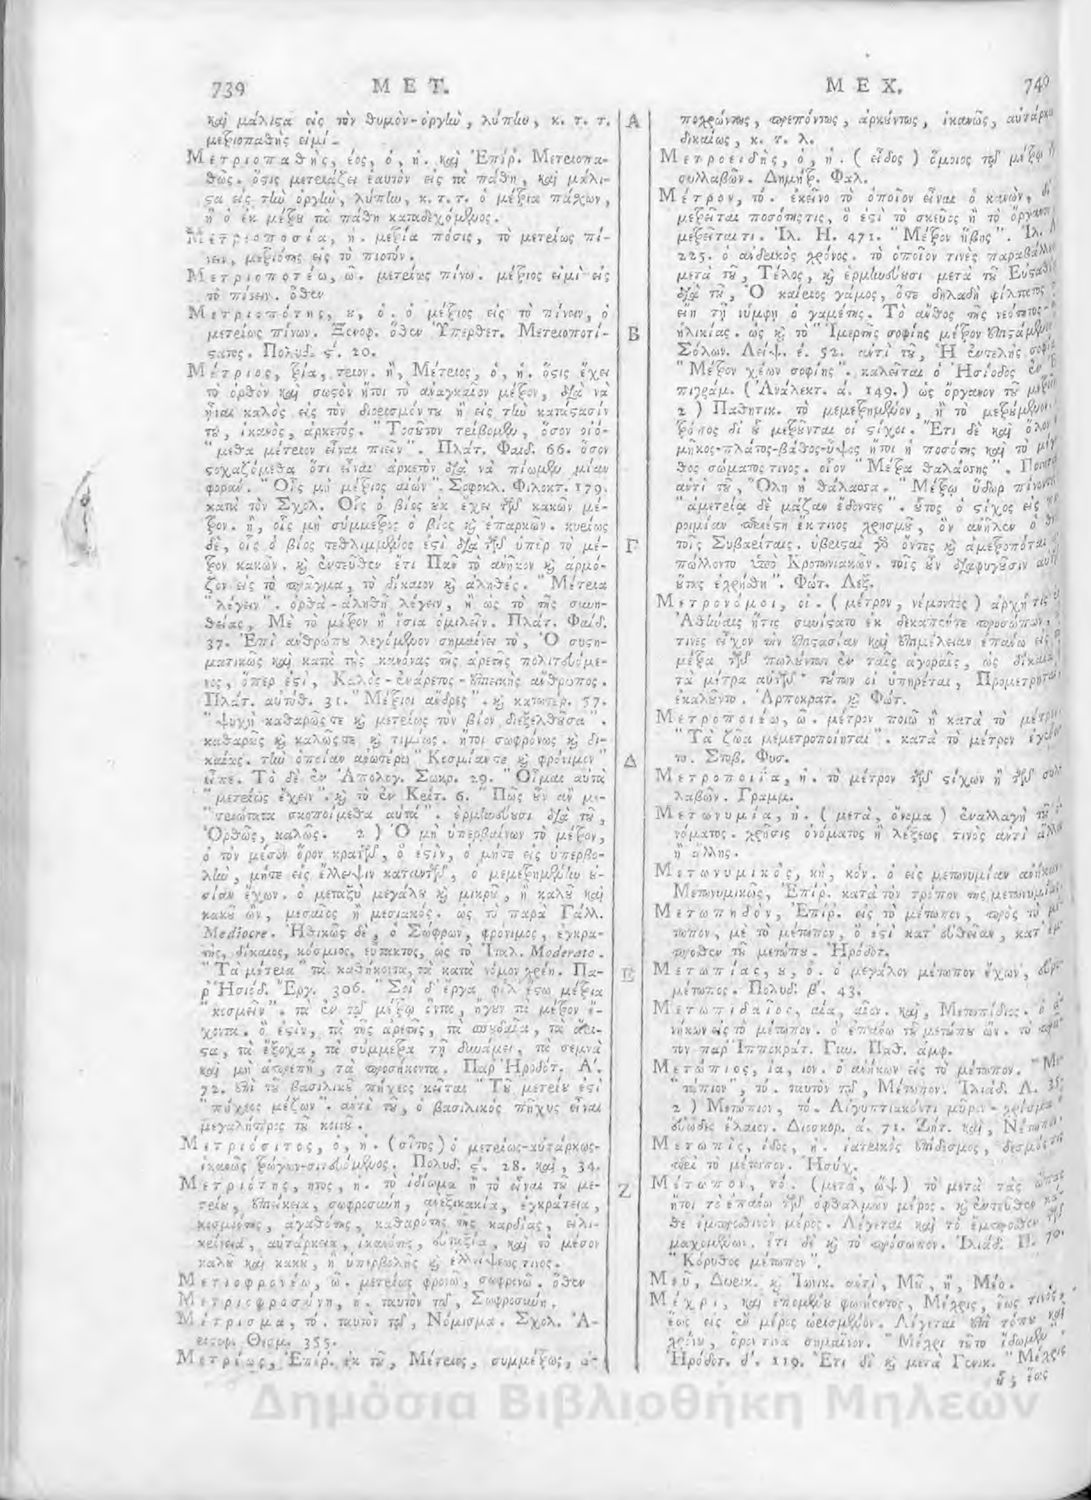 739 ΜΕΤ.
καὶ μάλιστα εἰς τὸν θυμὸν-ὀργὴν, λύπην, κ. τ. τ.
μετριοπαθὴς εἰμί.
Μετριοπαθὴς, έος, ὁ, ἡ. καὶ Ἐπίρ. Μετριοπα-
θῶς. ὅστις μετριάζει ἑαυτὸν εἰς τὰ πάθη, καὶ μάλι-
στα εἰς τὴν ὀργὴν, λύπην, κ. τ. τ. ὁ μέτρια πάσχων,
ἢ ὁ ἐκ μέτρου τὰ πάθη καταδεχόμενος.
Μετριοποσία, ἡ. μετρία πόσις, τὸ μετρίως πί-
νειν, μετριότης εἰς τὸ πιοτόν.
Μετριοποτέω, ῶ. μετρίως πίνω. μέτριος εἰμὶ εἰς
τὸ πίνειν. ὅθεν
Μετριοπότης, ου, ὁ. ὁ μέτριος εἰς τὸ πίνειν, ὁ
μετρίως πίνων. Ξενοφ. ὅθεν Ὑπερθετ. Μετριοποτί-
στατος. Πολυδ. ϛ΄. 20.
Μέτριος, τρία, τριον. ἢ, Μέτριος, ὁ, ἡ. ὅστις ἔχει
τὸ ὀρθὸν καὶ σωστὸν ἤτοι τὸ ἀναγκαῖον μέτρον, διὰ νὰ
ἦναι καλὸς εἰς τὸν διορισμόν του ἢ εἰς τὴν κατάστασίν
του, ἱκανὸς, ἀρκετός. "Τοσοῦτον τρίβομεν, ὅσον οἰό-
"μεθα μέτριον εἶναι πιεῖν". Πλάτ. Φαίδ. 66. ὅσον
στοχαζόμεθα ὅτι εἶναι ἀρκετὸν διὰ νὰ πίωμεν μίαν
φοράν. "Οἷς μὴ μέτριος αἰών" Σοφοκλ. Φιλοκτ. 179.
κατὰ τὸν Σχολ. Οἷς ὁ βίος οὐκ ἔχει τῶν κακῶν μέ-
τρον. ἢ, οἷς μὴ σύμμετρος ὁ βίος καὶ ἐπαρκῶν. κυρίως
δὲ, οἷς ὁ βίος τεθλιμμένος ἐστὶ διὰ τῶν ὑπὲρ τὸ μέ-
τρον κακῶν. καὶ ἐντεῦθεν ἔτι Πᾶν τὸ ἀνῆκον καὶ ἁρμό-
ζον εἰς τὸ πρᾶγμα, τὸ δίκαιον καὶ ἀληθές. "Μέτρια
"λέγειν". ὀρθὰ-ἀληθῆ λέγειν, ἢ ὡς τὸ τῆς συνη-
θείας, Μὲ τὸ μέτρον ἢ ἴσια ὁμιλεῖν. Πλάτ. Φαίδ.
37. Ἐπὶ ἀνθρώπου λεγόμενον σημαίνει τὸ, Ὁ συστη-
ματικῶς καὶ κατὰ τῆς κανόνας τῆς ἀρετῆς πολιτευόμε-
νος, ὅπερ ἐστὶ, Καλὸς-ἐνάρετος-ἐπιεικὴς ἄνθρωπος.
Πλάτ. αὐτόθ. 31. "Μέτριοι ἄνδρες". καὶ κατωτέρ. 57.
"ψυχὴ καθαρῶς τε καὶ μετρίως τὸν βίον διεξελθοῦσα".
καθαρῶς καὶ καλῶς τε καὶ τιμίως. ἤτοι σωφρόνως καὶ δι-
καίως. τὴν ὁποίαν ἀνωτέρω "Κοσμίαν τε καὶ φρόνιμον"
εἶπε. Τὸ δὲ ἐν Ἀπολογ. Σωκρ. 29. "Οἶμαι αὐτὰ
"μετρίως ἔχειν". καὶ τὸ ἐν Κρίτ. 6. "Πῶς οὖν ἂν με-
"τριώτατα σκοποίμεθα αὐτά". ἑρμηνεύουσι διὰ τοῦ,
Ὀρθῶς, καλῶς. 2) Ὁ μὴ ὑπερβαίνων τὸ μέτρον,
ὁ τὸν μέσον ὅρον κρατῶν, ὅ ἐστὶν, ὁ μήτε εἰς ὑπερβο-
λὴν, μήτε εἰς ἔλλειψιν καταντῶν, ὁ μεμετρημένην οὐ-
σίαν ἔχων. ὁ μεταξὺ μεγάλου καὶ μικροῦ, ἢ καλοῦ καὶ
κακοῦ ὢν, μεσαῖος ἢ μεσιακός. ὡς τὸ παρὰ Γάλλ.
Mediocre. Ἠθικῶς δὲ, ὁ Σώφρων, φρόνιμος, ἐγκρα-
τὴς, δίκαιος, κόσμιος, εὔτακτος, ὡς τὸ Ἰταλ. Moderato.
"Τὰ μέτρια" τὰ καθήκοντα, τὰ κατὰ νόμον χρέη. Πα-
ρ' Ἡσιόδ. Ἔργ. 306. "Σοὶ δ' ἔργα φίλ' ἔστω μέτρια
"κοσμεῖν". τὰ ἐν τῷ μέτρῳ ὄντα, ἤγουν τὰ μέτρον ἔ-
χοντα. ὅ ἐστὶν, τὰ τῆς ἀρετῆς, τὰ σπουδαῖα, τὰ ἄρι-
στα, τὰ ἔξοχα, τὰ σύμμετρα τῇ δυνάμει, τὰ σεμνὰ
καὶ μὴ ἀπρεπῆ, τὰ προσήκοντα. Παρ' Ἡροδότ. Α΄.
72. ἐπὶ τοῦ βασιλικοῦ πήχεος κεῖται "Τοῦ μετρίου ἐστὶ
"πήχεος μέζων". ἀντὶ τοῦ, ὁ βασιλικὸς πῆχυς εἶναι
μεγαλήτερος τοῦ κοινοῦ.
Μετριόσιτος, ὁ, ἡ. (σῖτος) ὁ μετρίως-αὐτάρκως-
ἱκανῶς τρώγων-σιτευόμενος. Πολυδ. ϛ΄. 28. καὶ, 34.
Μετριότης, ητος, ἡ. τὸ ἰδίωμα ἢ τὸ εἶναι τοῦ με-
τρίου, ἐπιείκεια, σωφροσύνη, ἀνεξικακία, ἐγκράτεια,
κοσμιότης, ἀγαθότης, καθαρότης τῆς καρδίας, εἰλι-
κρίνεια, αὐτάρκεια, ἱκανότης, εὐταξία, καὶ τὸ μέσον
καλοῦ καὶ κακοῦ, ἢ ὑπερβολῆς καὶ ἐλλείψεως τινος.
Μετριοφρονέω, ῶ. μετρίως φρονῶ, σωφρονῶ. ὅθεν
Μετριοφροσύνη, ἡ. ταυτὸν τῷ, Σωφροσύνη.
Μέτρισμα, τό. ταυτὸν τῷ, Νόμισμα. Σχολ. Ἀ-
ριστοφ. Θεσμ. 355.
Μετρίως, Ἐπίρ. ἐκ τοῦ, Μέτριος, συμμέτρως, ἀ-
Α
Β
Γ
Δ
Ε
Ζ
ΜΕΧ. 740
ποχρώντως, πρεπόντως, ἀρκούντως, ἱκανῶς, αὐτάρκ
δικαίως, κ. τ. λ.
Μετροειδὴς, ὁ, ἡ. (εἶδος) ὅμοιος τῷ μέτρῳ
συλλαβῶν. Δημήτρ. Φαλ.
Μέτρον, τό. ἐκεῖνο τὸ ὁποῖον εἶναι ὁ κανὼν,
μετρεῖται ποσότης τις, ὅ ἐστὶ τὸ σκεῦος ἢ τὸ ὄργανον
μετρεῖται τι. Ἰλ. Η. 471. "Μέτρον ἥβης". Ἰλ. Λ
225. ὁ ἀνδρικὸς χρόνος. τὸ ὁποῖον τινὲς παραβάλλου
μετὰ τοῦ, Τέλος, καὶ ἑρμηνεύουσι μετὰ τοῦ Εὐσταθί
διὰ τοῦ, Ὁ καίριος γάμος, ὅτε δηλαδὴ φίλτατος
εἴη τῇ νύμφῃ ὁ γαμέτης. Τὸ ἄνθος τῆς νεότητος-
ἡλικίας. ὡς καὶ τὸ "Ἱμερτῆς σοφίης μέτρον ἐπιστάμενος
Σόλων. Λείψ. έ. 52. ἀντὶ τοῦ, Ἡ ἐντελὴς σοφία
"Μέτρον χέων σοφίης". καλεῖται ὁ Ἡσίοδος ἐν
πιγράμ. (Ἀνάλεκτ. ά. 149.) ὡς ὄργανον τοῦ μέτρου
2) Παθητικ. τὸ μεμετρημένον, ἢ τὸ μετρούμενον.
τρόπος δι' οὗ μετροῦνται οἱ στίχοι. Ἔτι δὲ καὶ ὅλον
μῆκος-πλάτος-βάθος-ὕψος ἤτοι ἡ ποσότης καὶ τὸ μέγ
θος σώματος τινος. οἷον "Μέτρα θαλάσσης". Ποιητ
ἀντὶ τοῦ, Ὅλη ἡ θάλασσα. "Μέτρῳ ὕδωρ πίνοντες
"ἀμετρία δὲ μάζαν ἔδοντες". οὗτος ὁ στίχος εἰς
ροιμίαν περιέστη ἔκ τινος χρησμοῦ, ὃν ἀνῆλεν ὁ θ
τοῖς Συβαρίταις. ὑβρισταὶ γὰρ ὄντες καὶ ἀμετροπόται
πώλλοντο ὑπὸ Κροτωνιατῶν. τοῖς οὖν διαφυγοῦσιν αὐτ
οὗτος ἐχρήσθη". Φώτ. Λεξ.
Μετρονόμοι, οἱ. (μέτρον, νέμοντες) ἀρχή τις
Ἀθήναις ἥτις συνίστατο ἐκ δεκαπέντε προσώπων,
τινες εἶχον τὴν ἐπιστασίαν καὶ ἐπιμέλειαν ἐπάνω εἰς
μέτρα τῶν πωλούντων ἐν ταῖς ἀγοραῖς, ὡς δίκαια
τὰ μέτρα αὐτῶν. τούτων οἱ ὑπηρέται, Προμετρηταὶ
ἐκαλοῦντο. Ἁρποκρατ. καὶ Φώτ.
Μετροποιέω, ῶ. μέτρον ποιῶ ἢ κατὰ τὸ μέτρον
"Τὰ ζῶα μεμετροποίηται". κατὰ τὸ μέτρον ἐγέν
το. Στοβ. Φυσ.
Μετροποιΐα, ἡ. τὸ μέτρον τῶν στίχων ἢ τῶν συλ
λαβῶν. Γραμμ.
Μετωνυμία, ἡ. (μετὰ, ὄνομα) ἐναλλαγὴ τοῦ
νόματος. χρῆσις ὀνόματος ἢ λέξεως τινὸς ἀντὶ ἄλλ
ἢ ἄλλης.
Μετωνυμικὸς, κὴ, κόν. ὁ εἰς μετωνυμίαν ἀνήκων
Μετωνυμικῶς, Ἐπίρ. κατὰ τὸν τρόπον τῆς μετωνυμίας
Μετωπηδὸν, Ἐπίρ. εἰς τὸ μέτωπον, πρὸς τὸ μέ
τωπον, μὲ τὸ μέτωπον, ὅ ἐστὶ κατ' εὐθεῖαν, κατ' ἔμ
προσθεν τοῦ μετώπου. Ἡρόδοτ.
Μετωπίας, ου, ὁ. ὁ μεγάλον μέτωπον ἔχων, εὐρυ
μέτωπος. Πολυδ. β΄. 43.
Μετωπιδαῖος, αία, αῖον. καὶ, Μετωπίδιος. ὁ ἀ
νήκων εἰς τὸ μέτωπον. ὁ ἐπάνω τοῦ μετώπου ὤν.
τον παρ' Ἱπποκράτ. Γυν. Παθ. ἀμφ.
Μετώπιος, ία, ιον. ὁ ἀνήκων εἰς τὸ μέτωπον. "Με
"τώπιον", τό. ταυτὸν τῷ, Μέτωπον. Ἰλιάδ. Λ.
2) Μετώπιον, τό. Αἰγυπτιακόν τι μύρον-χρῖσμα
εὐῶδες ἔλαιον. Διοσκορ. ά. 71. Ζήτ. καὶ, Νέτωπον
Μετωπὶς, ίδος, ἡ. ἰατρικὸς ἐπίδεσμος, δεσμὸς
περὶ τὸ μέτωπον. Ἡσύχ.
Μέτωπον, τό. (μετὰ, ὤψ) τὸ μετὰ τὰς ὦπας
ἤτοι τὸ ἐπάνω τῶν ὀφθαλμῶν μέρος. καὶ ἐντεῦθεν κά
θε ἐμπροσθινὸν μέρος. Λέγεται καὶ τὸ ἔμπροσθεν τῶν
μαχομένων. ἔτι δὲ καὶ τὸ πρόσωπον. Ἰλιάδ. Π. 70.
"Κόρυθος μέτωπον".
Μεῦ, Δωρικ. καὶ Ἰωνικ. ἀντὶ, Μοῦ, ἢ, Μέο.
Μέχρι, καὶ ἑπομένου φωνήεντος, Μέχρις, ἕως τινὸς,
ἕως εἰς ἓν μέρος ὡρισμένον. Λέγεται ἐπὶ τόπου καὶ
χρόνου, ὅρον τινὰ σημαῖνον. "Μέχρι τοῦτο ἴδωμεν"
Ἡρόδοτ. δ΄. 119. Ἔτι δὲ καὶ μετὰ Γενικ. "Μέχρις
οὗ, ἕως
Δημόσια Βιβλιοθήκη Μηλεών